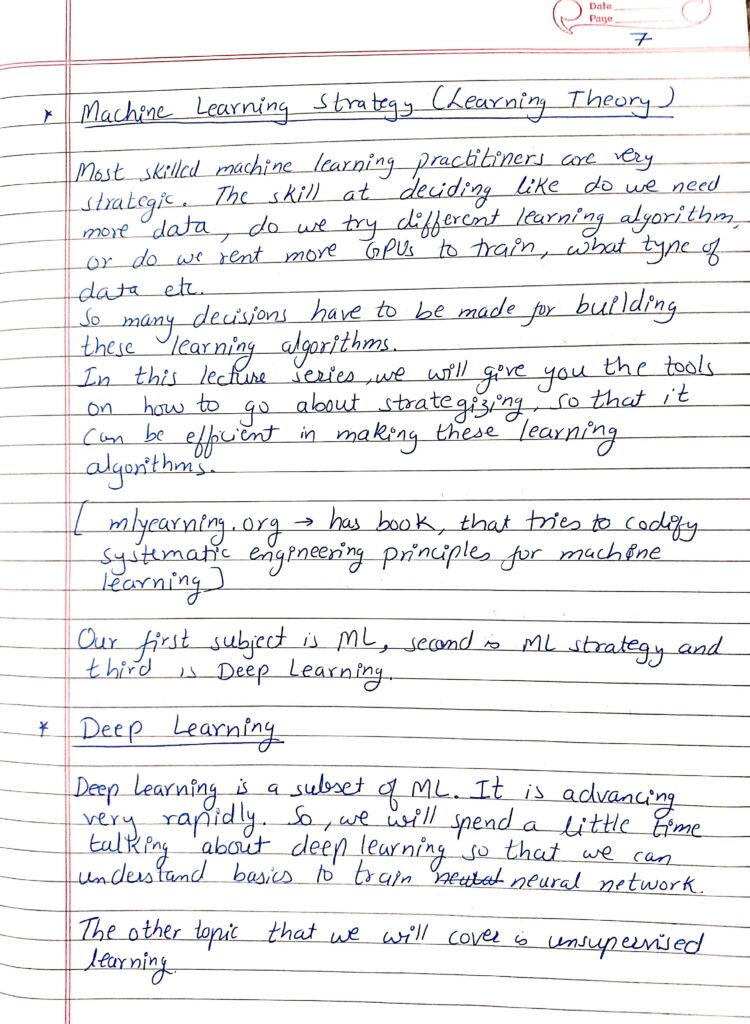 Date
Page
7
* Machine Learning Strategy (Learning Theory)
Most skilled machine learning practitiners are very
strategic. The skill at deciding like do we need
more data, do we try different learning algorithm,
or do we rent more GPUs to train, what type of
data etc.
So many decisions have to be made for building
these learning algorithms.
In this lecture series, we will give you the tools
on how to go about strategizing, so that it
can be efficient in making these learning
algorithms.
[ mlyearning.org → has book, that tries to codify
systematic engineering principles for machine
learning]
Our first subject is ML, second is ML strategy and
third is Deep Learning.
* Deep Learning
Deep Learning is a subset of ML. It is advancing
very rapidly. So, we will spend a little time
talking about deep learning so that we can
understand basics to train neural network.
The other topic that we will cover is unsupervised
learning.